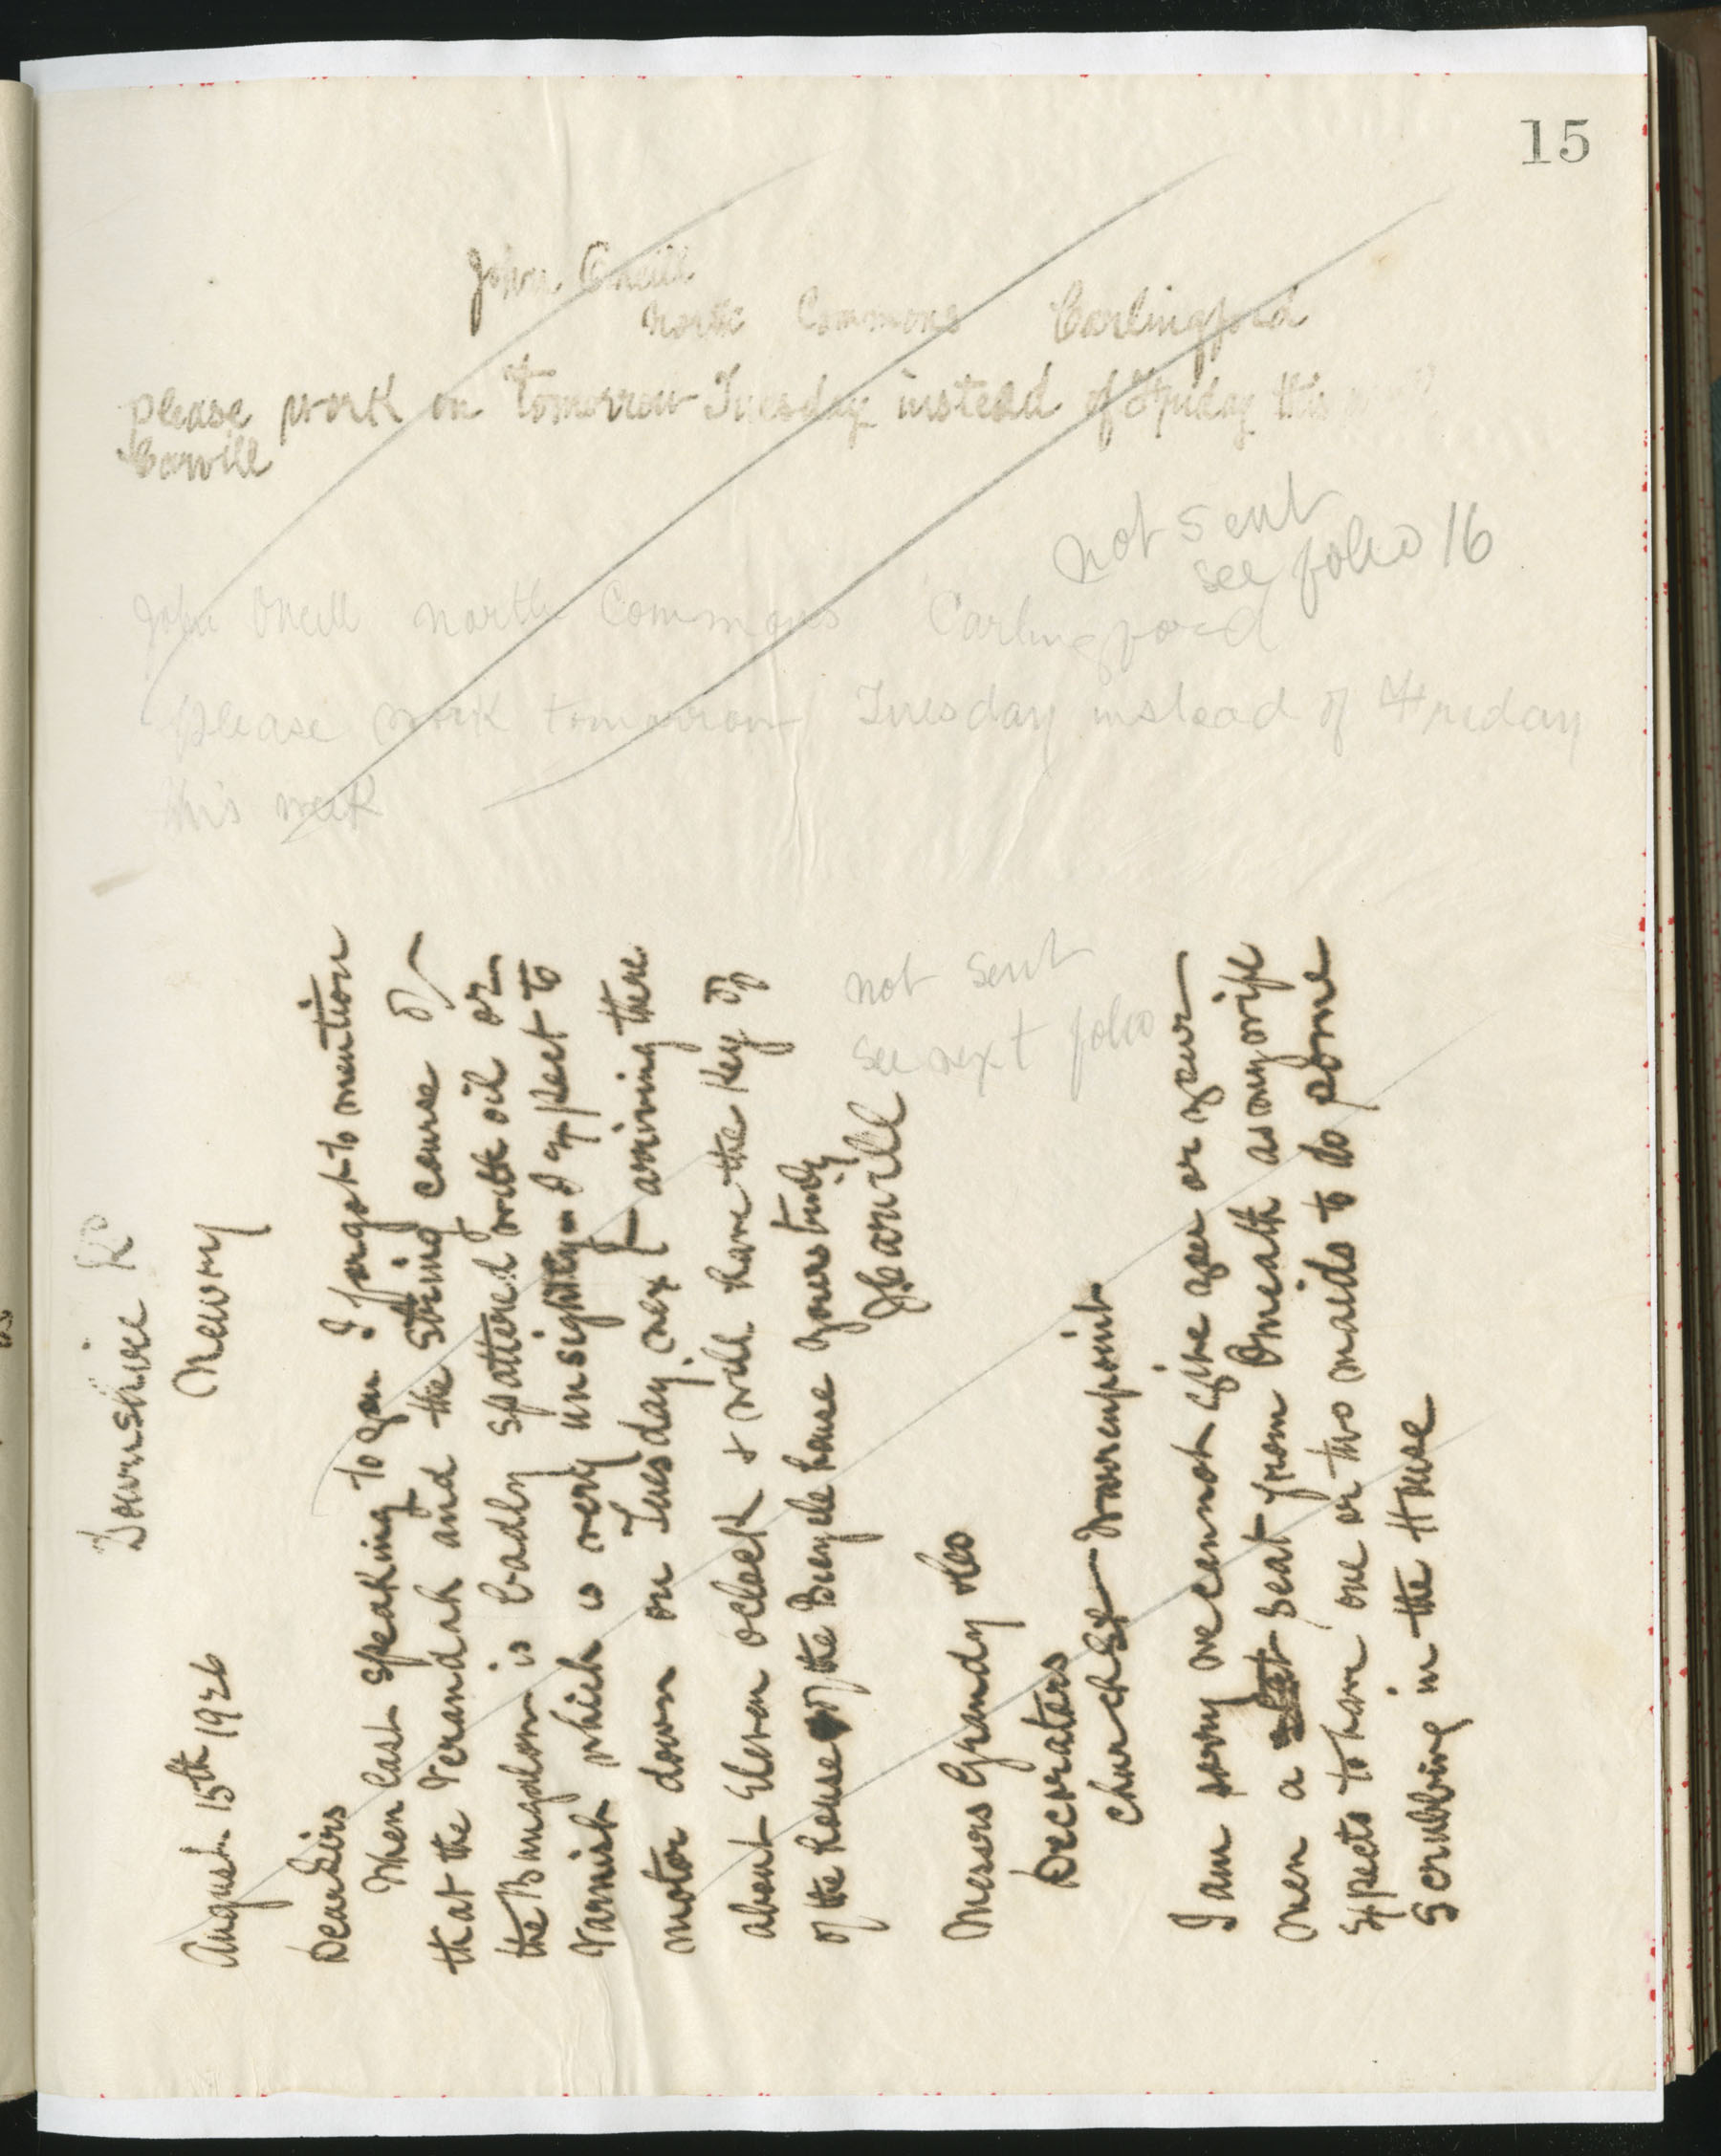 15
John Oneill
North Commons Carlingford
please work on tomorrow Tuesday instead of Friday this
Carvill
not sent
see folio 16
John Oneill North Commons Carlingford
please work tomorrow Tuesday instead of Friday
this week
Downshire Rd
Newry
August 15th 1926
Dear Sirs
When last speaking to you I forgot to mention
that the Verandah and the string course of
the Bungalow is badly spattered with oil or
varnish which is very unsightly I expect to
motor down on Tuesday next arriving there
about Eleven oclock & will have the key of
of the house of the Bicycle house yours truly
J Carvill
not sent
see next folio
Messrs Grandy & Co
Decorators
Church St Warrenpoint
I am sorry we cannot give you or your
men a seat from Omeath as my wife
expects to have one or two maids to do some
Scrubbing in the House